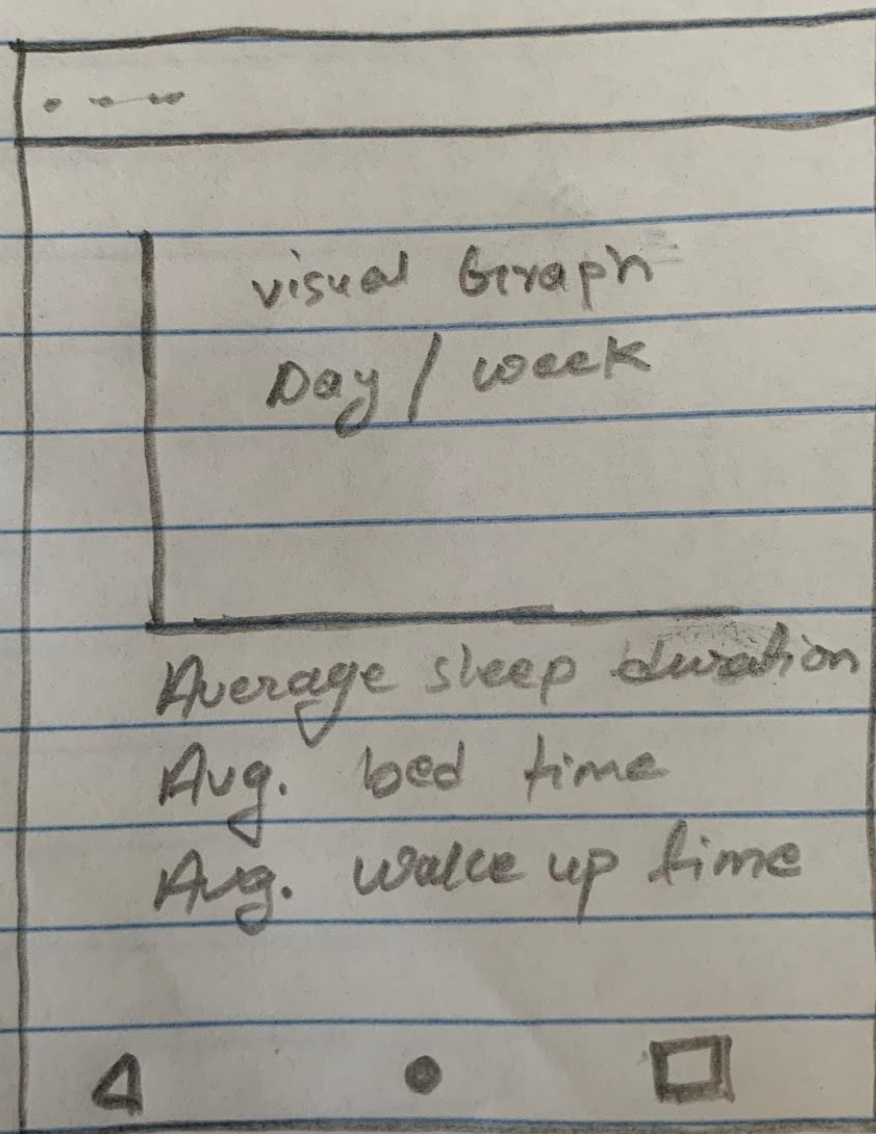 visual Graph
Day / week
Average sleep duration
Avg. bed time
Avg. wake up time